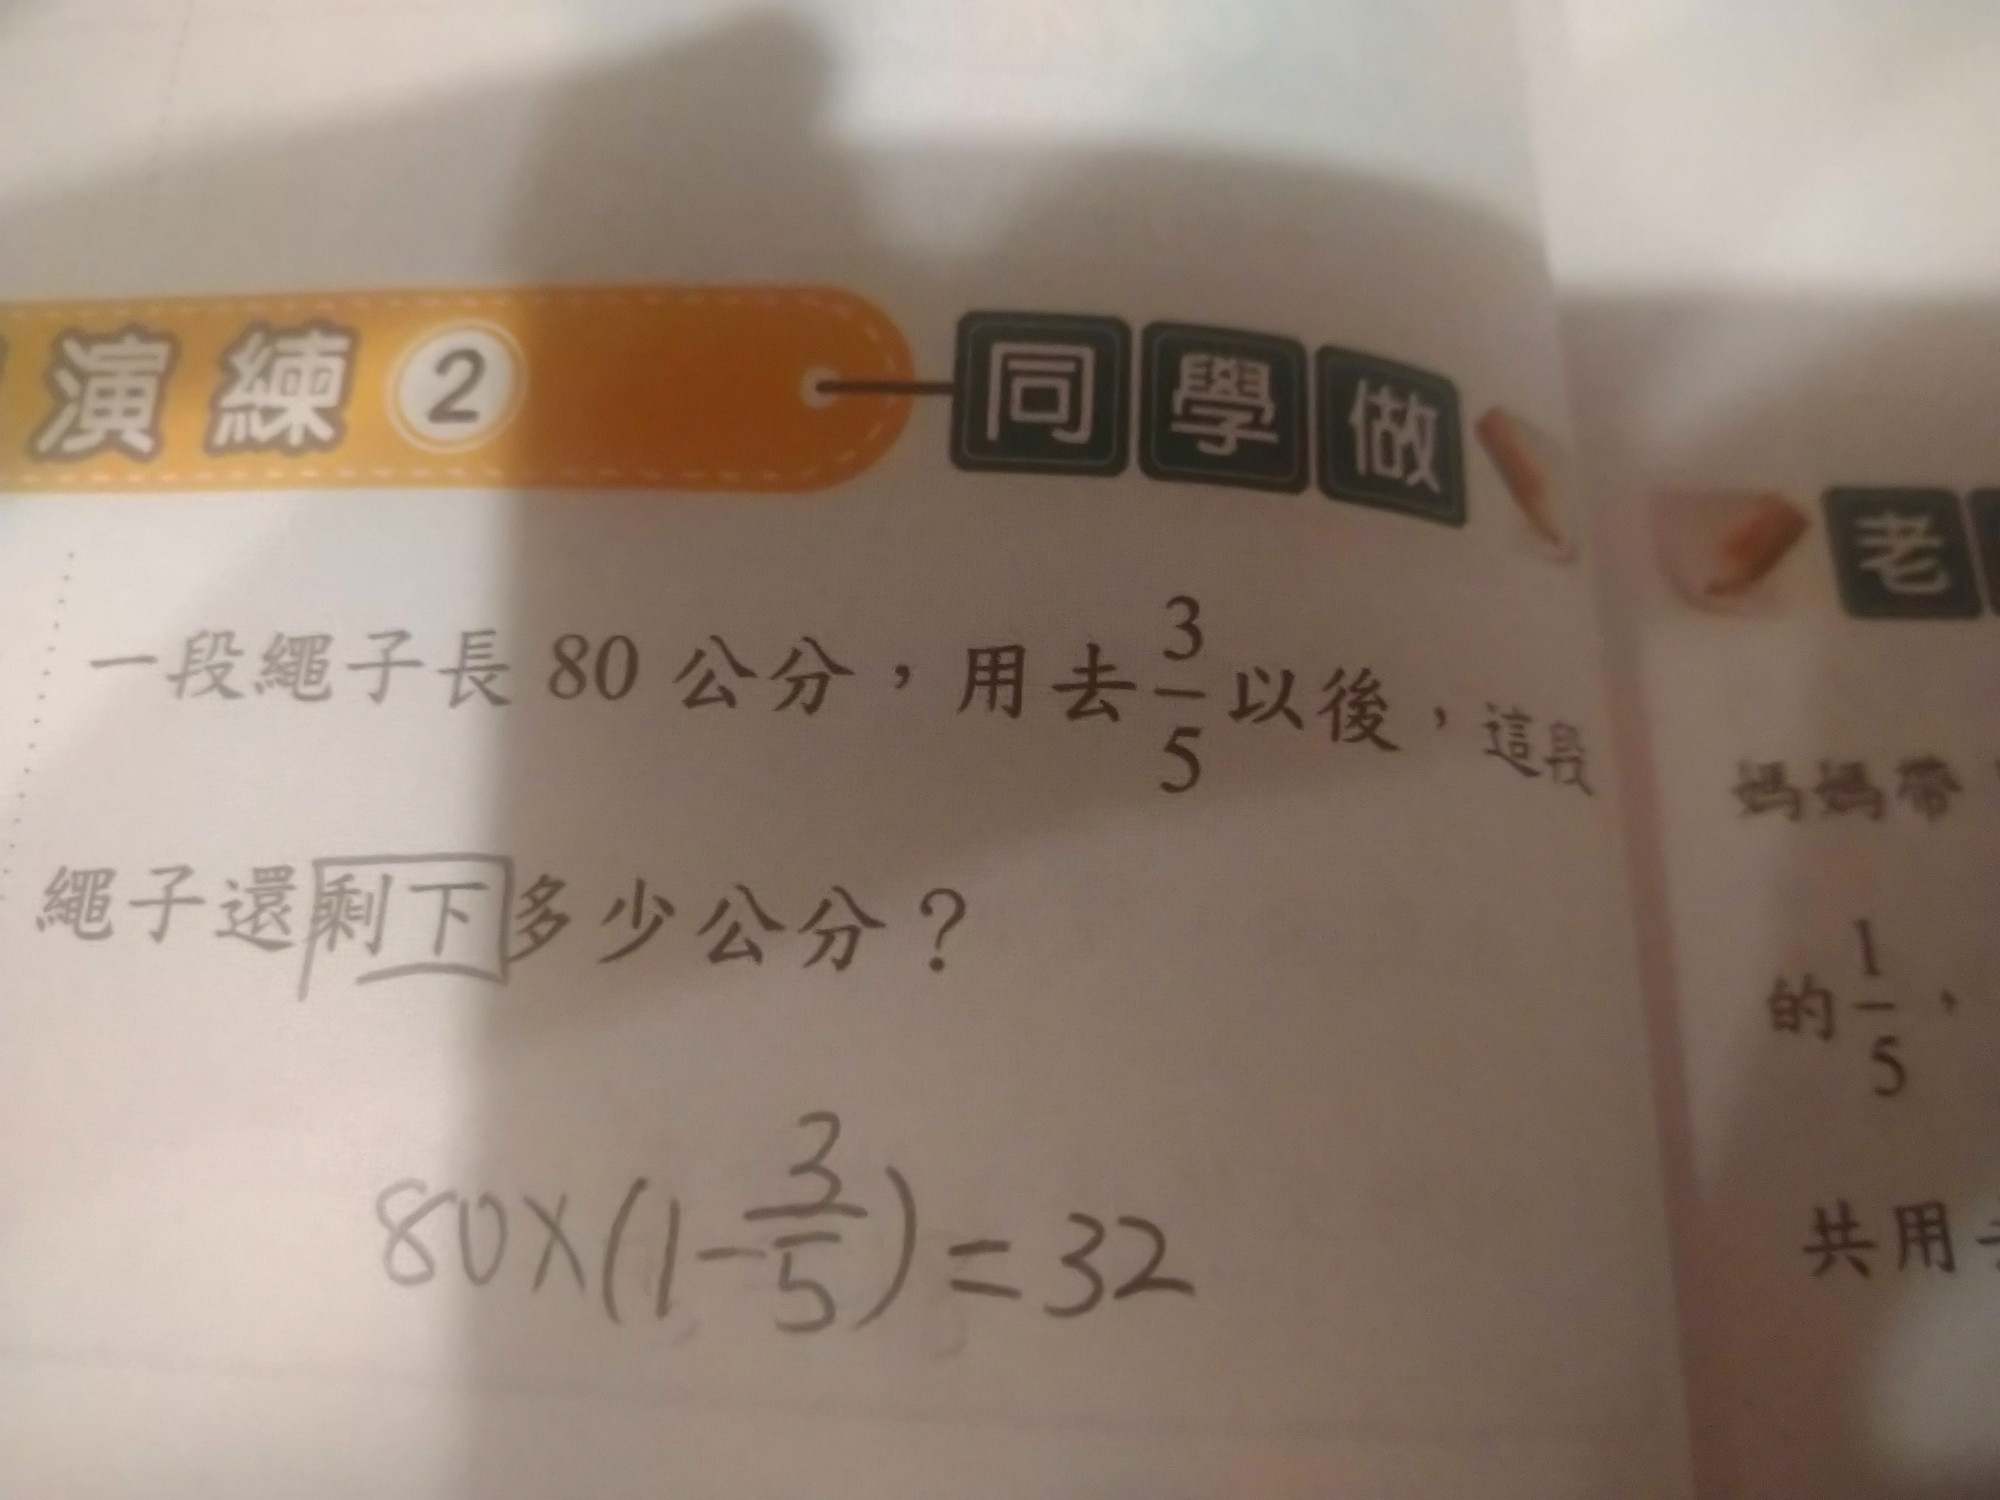 演練2 同學做
一段繩子長80公分，用去3/5以後，這段
繩子還剩下多少公分？
80×(1-3/5)=32
老
媽媽帶
的1/5，
共用